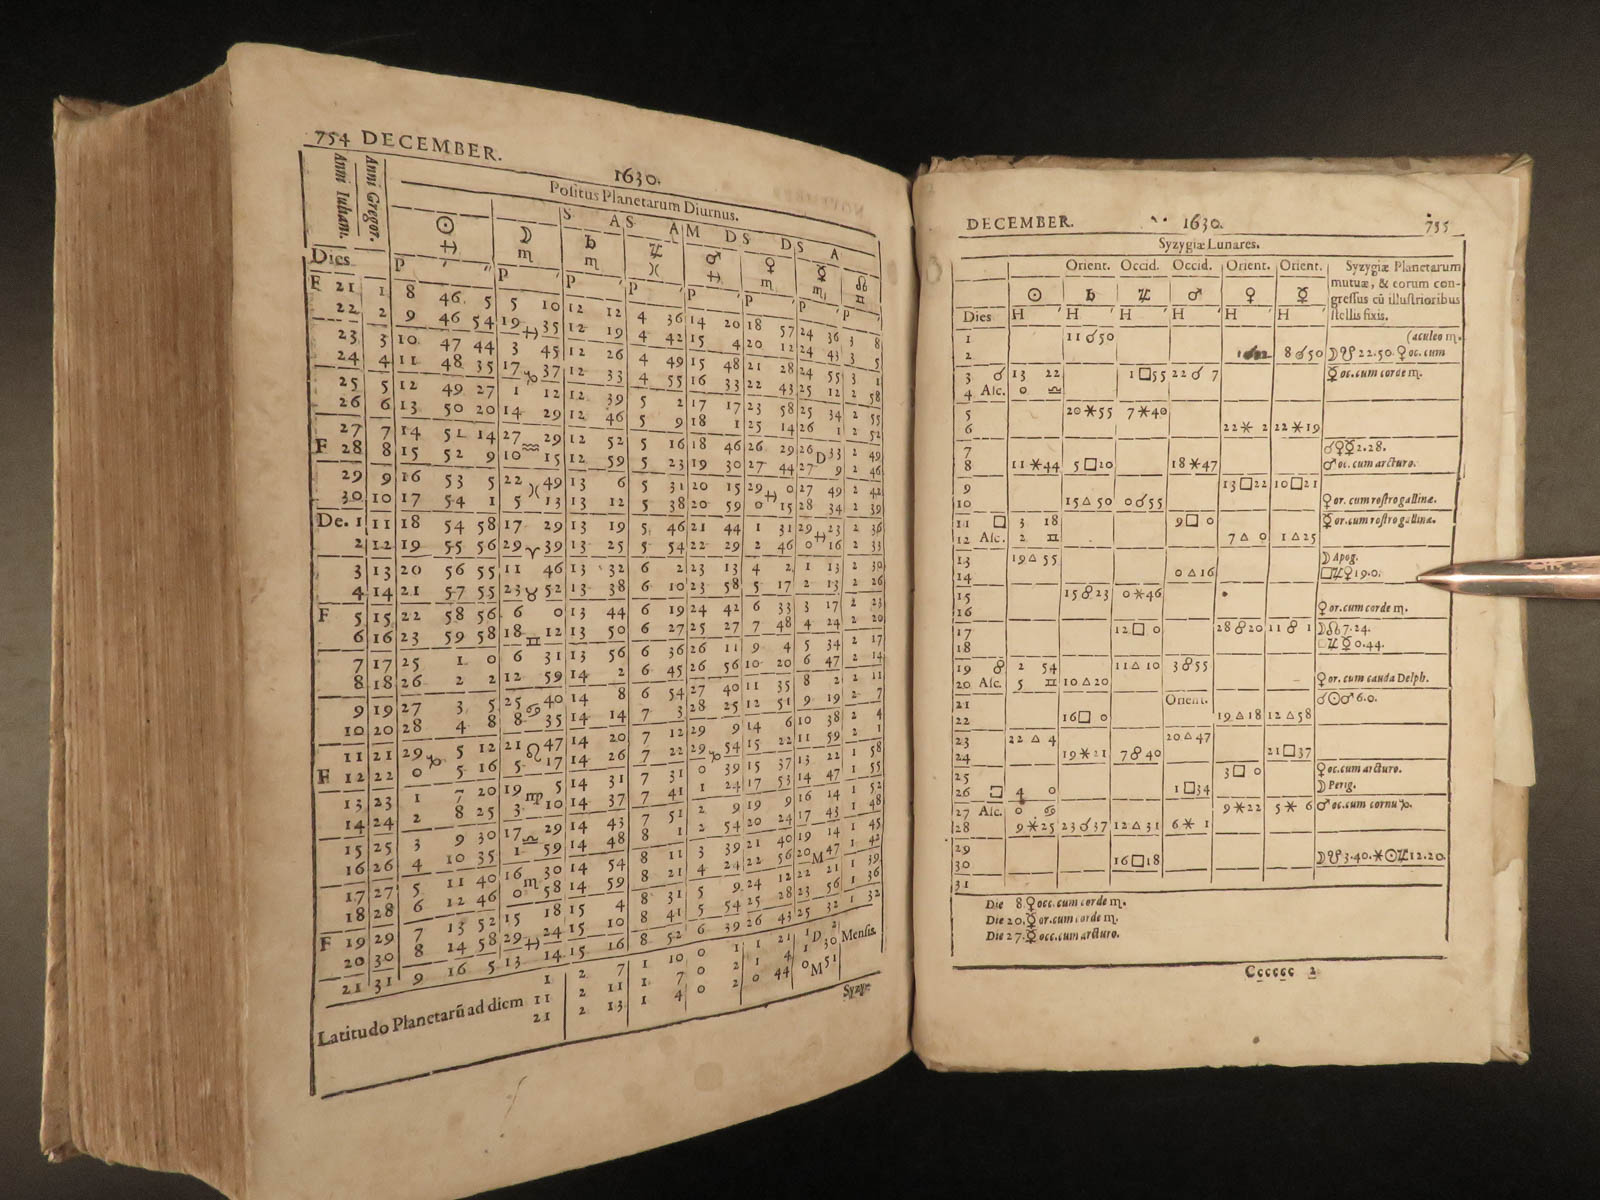 754 DECEMBER.
1630.
Anni Iulian.
Anni Gregor.
Positus Planetarum Diurnus.
S A S A M D S D S A
☉ ☽ ♄ ♃ ♂ ♀ ☿ ☊
♐ ♏ ♏ ♓ ♐ ♏ ♏ ♊
Dies P ′ ″ P ′ P ′ P ′ P ′ P ′ P ′ P ′
F 21 1 8 46 5 5 10 12 12 4 36 14 20 18 57 24 36 3 8
22 2 9 46 54 19 ♐ 35 12 19 4 42 15 4 20 12 24 43 3 5
23 3 10 47 44 3 45 12 26 4 49 15 48 21 28 24 55 3 1
24 4 11 48 35 17 ♑ 37 12 33 4 55 16 33 22 43 25 12 2 58
25 5 12 49 27 1 12 12 39 5 2 17 17 23 58 25 34 2 55
26 6 13 50 20 14 29 12 46 5 9 18 1 25 14 26 1 2 52
27 7 14 51 14 27 ♒ 29 12 52 5 16 18 46 26 29 26 D 33 2 49
F 28 8 15 52 9 10 15 12 59 5 23 19 30 27 44 27 9 2 46
29 9 16 53 5 22 ♓ 49 13 6 5 31 20 15 29 ♐ 0 27 49 2 42
30 10 17 54 1 5 13 13 12 5 38 20 59 0 15 28 34 2 39
De. 1 11 18 54 58 17 29 13 19 5 46 21 44 1 31 29 ♐ 23 2 36
2 12 19 55 56 29 ♈ 39 13 25 5 54 22 29 2 46 0 16 2 33
3 13 20 56 55 11 46 13 32 6 2 23 13 4 2 1 13 2 30
4 14 21 57 55 23 ♉ 52 13 38 6 10 23 58 5 17 2 13 2 26
F 5 15 22 58 56 6 0 13 44 6 19 24 42 6 33 3 17 2 23
6 16 23 59 58 18 ♊ 12 13 50 6 27 25 27 7 48 4 24 2 20
7 17 25 1 0 6 31 13 56 6 36 26 11 9 4 5 34 2 17
8 18 26 2 2 12 59 14 2 6 45 26 56 10 20 6 47 2 14
9 19 27 3 5 25 ♋ 40 14 8 6 54 27 40 11 35 8 2 2 11
10 20 28 4 8 8 35 14 14 7 3 28 25 12 51 9 19 2 7
11 21 29 ♑ 5 12 21 ♌ 47 14 20 7 12 29 9 14 6 10 38 2 4
F 12 22 0 5 16 5 17 14 26 7 22 29 ♑ 54 15 22 11 59 2 1
13 23 1 7 20 19 ♍ 5 14 31 7 31 0 39 15 37 13 22 1 58
14 24 2 8 25 3 10 14 37 7 41 1 24 17 53 14 47 1 55
15 25 3 9 30 17 ♎ 29 14 43 7 51 2 9 19 9 16 14 1 52
16 26 4 10 35 1 59 14 48 8 1 2 54 20 24 17 43 1 48
17 27 5 11 40 16 ♏ 30 14 54 8 11 3 39 21 40 19 14 1 45
18 28 6 12 46 0 58 14 59 8 21 4 24 22 56 20 M 47 1 42
F 19 29 7 13 52 15 18 15 4 8 31 5 9 24 12 22 21 1 39
20 30 8 14 58 29 ♐ 24 15 10 8 41 5 54 25 28 23 56 1 36
21 31 9 16 5 13 14 15 16 8 52 6 39 26 43 25 32 1 32
Latitudo Planetarũ ad diem 1 2 7 1 10 0 1 1 21 1 D 2 Mensis.
11 2 11 1 7 0 2 1 4 1 30
21 2 13 1 4 0 2 0 44 0 M 51
Syzy-
DECEMBER. 1630. 755
Syzygiæ Lunares.
Orient. Occid. Occid. Orient. Orient. Syzygiæ Planetarum
☉ ♄ ♃ ♂ ♀ ☿ mutuæ, & eorum con-
gressus cũ illustrioribus
Dies H ′ H ′ H H H ′ H ′ stellis fixis.
1 11 ☌ 50 (aculeo ♏.
2 8 ☌ 50 ☽☋ 22.50. ♀ oc. cum
3 ☌ 13 22 1 □ 55 22 ☌ 7 ☿ oc. cum corde ♏.
4 Asc. 0 ♎
5 20 ⚹ 55 7 ⚹ 40
6 22 ⚹ 2 22 ⚹ 19
7 ☌♀☿ 2.28.
8 11 ⚹ 44 5 □ 20 18 ⚹ 47 ♂ oc. cum arcturo.
9 13 □ 22 10 □ 21
10 15 △ 50 0 ☌ 55 ♀ or. cum rostro gallinæ.
11 □ 3 18 9 □ 0 ☿ or. cum rostro gallinæ.
12 Asc. 2 ♊ 7 △ 0 1 △ 25
13 19 △ 55 ☽ Apog.
14 0 △ 16 □♃♀ 19.0.
15 15 ☍ 23 0 ⚹ 46
16 ♀ or. cum corde ♏.
17 12 □ 0 28 ☍ 20 11 ☍ 1 ☽☊ 7.24.
18 □♃☿ 0.44.
19 ☍ 2 54 11 △ 10 3 ☍ 55
20 Asc. 5 ♊ 10 △ 20 ♀ or. cum cauda Delph.
21 Orient. ☌☉♂ 6.0.
22 16 □ 0 19 △ 18 12 △ 58
23 22 △ 4 20 △ 47
24 19 ⚹ 21 7 ☍ 40 21 □ 37
25 3 □ 0 ♀ oc. cum arcturo.
26 □ 4 0 1 □ 34 ☽ Perig.
27 Asc. 0 ♋ 9 ⚹ 22 5 ⚹ 6 ♂ oc. cum cornu ♑.
28 9 ⚹ 25 23 ☌ 37 12 △ 31 6 ⚹ 1
29
30 16 □ 18 ☽☋ 3.40. ⚹☉♃ 12.20.
31
Die 8 ♀ occ. cum corde ♏.
Die 20. ☿ or. cum corde ♏.
Die 27. ☿ occ. cum arcturo.
Cccccc 2